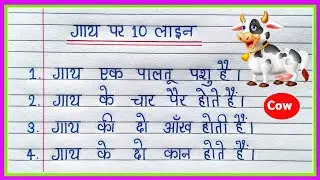 गाय पर 10 लाइन
1. गाय एक पालतू पशु है।
2. गाय के चार पैर होते हैं।
Cow
3. गाय की दो आँख होती हैं।
4. गाय के दो कान होते हैं।